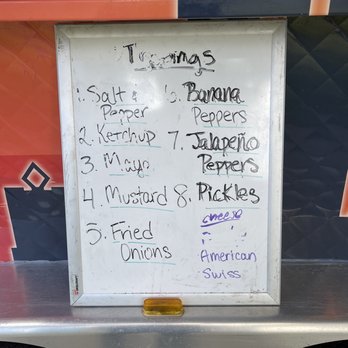 Toppings
1. Salt &
Pepper
2. Ketchup
3. Mayo
4. Mustard
5. Fried
Onions
6. Banana
Peppers
7. Jalapeño
Peppers
8. Pickles
cheese
American
Swiss